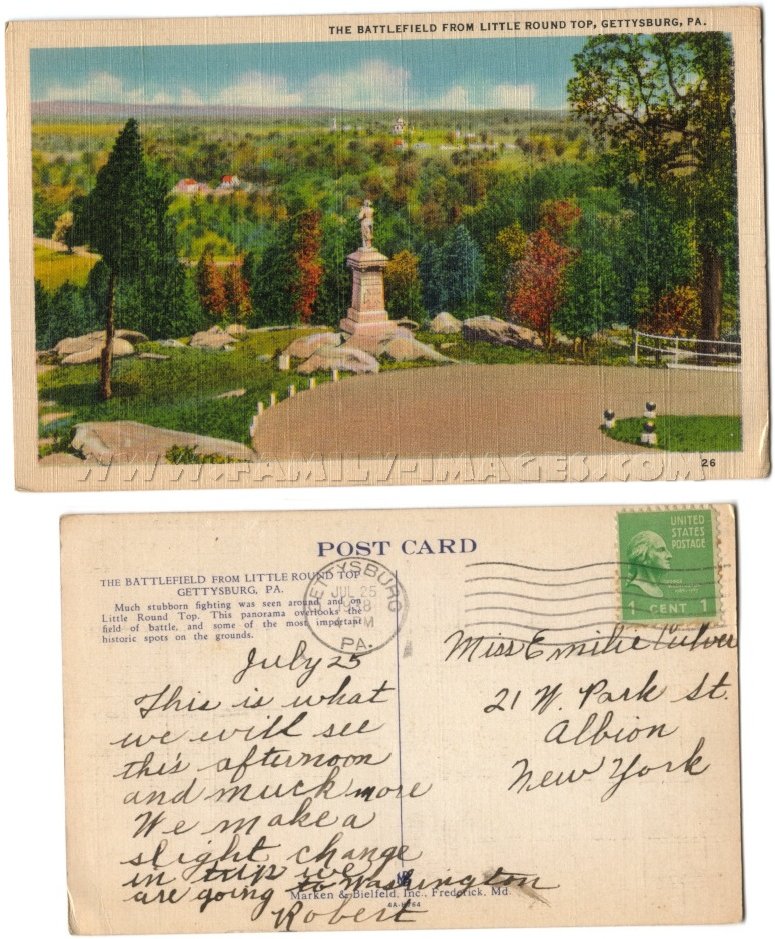 THE BATTLEFIELD FROM LITTLE ROUND TOP, GETTYSBURG, PA.
26
WWW.FAMILY-IMAGES.COM
POST CARD
THE BATTLEFIELD FROM LITTLE ROUND TOP
GETTYSBURG, PA.
Much stubborn fighting was seen around and on
Little Round Top. This panorama overlooks the
field of battle, and some of the most important
historic spots on the grounds.
GETTYSBURG
JUL 25
1938
PM
PA.
UNITED
STATES
POSTAGE
1 CENT 1
July 25
This is what
we will see
this afternoon
and much more
We make a
slight change
in trip we
are going to Washington
Robert
Miss Emilie Culver
21 W. Park St.
Albion
New York
Marken & Bielfeld, Inc., Frederick, Md.